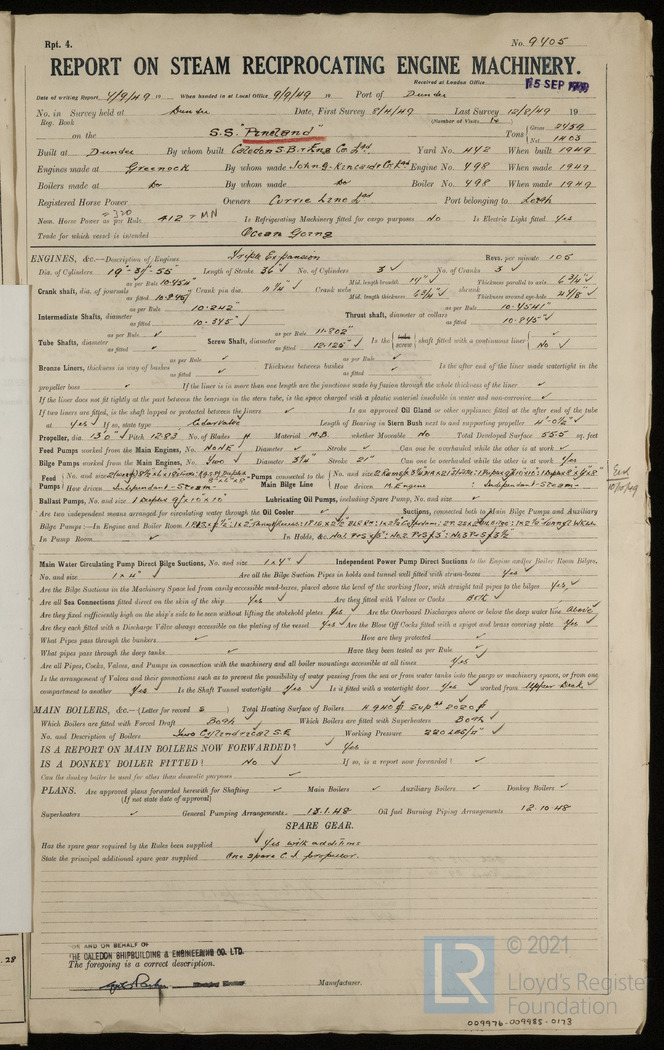 Rpt. 4. No. 9405
REPORT ON STEAM RECIPROCATING ENGINE MACHINERY.
Received at London Office 15 SEP 1949
Date of writing Report 4/9/49 19 When handed in at Local Office 9/9/49 19 Port of Dundee
No. in Survey held at Dundee Date, First Survey 8/4/49 Last Survey 12/8/49 19
Reg. Book (Number of Visits 14
on the S.S. "Pineland" Tons Gross 2459 Net 1403
Built at Dundee By whom built Caledon S.B. & Eng Co. Ltd Yard No. 442 When built 1949
Engines made at Greenock By whom made John G. Kincaid & Co Ltd Engine No. 498 When made 1949
Boilers made at Do By whom made Do Boiler No. 498 When made 1949
Registered Horse Power Owners Currie Line Ltd Port belonging to Leith
Nom. Horse Power as per Rule = 320 412 = MN Is Refrigerating Machinery fitted for cargo purposes No Is Electric Light fitted Yes
Trade for which vessel is intended Ocean Going
ENGINES, &c.—Description of Engines Triple Expansion Revs. per minute 105
Dia. of Cylinders 19"-31"-55" Length of Stroke 36" No. of Cylinders 3 No. of Cranks 3
Crank shaft, dia. of journals as per Rule 10.454" as fitted Crank pin dia. 11 1/4" Crank webs Mid. length breadth Mid. length thickness 6 3/4" shrunk Thickness parallel to axis 6 3/4" Thickness around eye-hole
Intermediate Shafts, diameter as per Rule 10.242" as fitted 10.345" Thrust shaft, diameter at collars as per Rule 10.4541" as fitted 10.845"
Tube Shafts, diameter as per Rule as fitted Screw Shaft, diameter as per Rule 11.802" as fitted 12.125" Is the tube screw shaft fitted with a continuous liner No
Bronze Liners, thickness in way of bushes as per Rule as fitted Thickness between bushes as per Rule as fitted Is the after end of the liner made watertight in the
propeller boss If the liner is in more than one length are the junctions made by fusion through the whole thickness of the liner
If the liner does not fit tightly at the part between the bearings in the stern tube, is the space charged with a plastic material insoluble in water and non-corrosive
If two liners are fitted, is the shaft lapped or protected between the liners Is an approved Oil Gland or other appliance fitted at the after end of the tube
at Yes If so, state type Cedervalls Length of Bearing in Stern Bush next to and supporting propeller 4'-0 1/2"
Propeller, dia. 13'0" Pitch 12.83 No. of Blades 4 Material M.B. whether Moveable No Total Developed Surface 55.5 sq. feet
Feed Pumps worked from the Main Engines, No. NONE Diameter Stroke Can one be overhauled while the other is at work
Bilge Pumps worked from the Main Engines, No. Two Diameter 3 1/4" Stroke 21" Can one be overhauled while the other is at work Yes
Feed Pumps No. and size How driven Independent-Steam Pumps connected to the Main Bilge Line No. and size How driven M. Engine : Independent-Steam
Ballast Pumps, No. and size 1 Duplex 9"x10"x10" Lubricating Oil Pumps, including Spare Pump, No. and size
Are two independent means arranged for circulating water through the Oil Cooler Suctions, connected both to Main Bilge Pumps and Auxiliary
Bilge Pumps:—In Engine and Boiler Room
In Pump Room In Holds, &c.
Main Water Circulating Pump Direct Bilge Suctions, No. and size 1 x 4" Independent Power Pump Direct Suctions to the Engine and/or Boiler Room Bilges,
No. and size 1 x 4" Are all the Bilge Suction Pipes in holds and tunnel well fitted with strum-boxes Yes
Are the Bilge Suctions in the Machinery Space led from easily accessible mud-boxes, placed above the level of the working floor, with straight tail pipes to the bilges Yes
Are all Sea Connections fitted direct on the skin of the ship Yes Are they fitted with Valves or Cocks Both
Are they fixed sufficiently high on the ship's side to be seen without lifting the stokehold plates Yes Are the Overboard Discharges above or below the deep water line Above
Are they each fitted with a Discharge Valve always accessible on the plating of the vessel Yes Are the Blow Off Cocks fitted with a spigot and brass covering plate Yes
What Pipes pass through the bunkers How are they protected
What pipes pass through the deep tanks Have they been tested as per Rule
Are all Pipes, Cocks, Valves, and Pumps in connection with the machinery and all boiler mountings accessible at all times Yes
Is the arrangement of Valves and their connections such as to prevent the possibility of water passing from the sea or from water tanks into the cargo or machinery spaces, or from one
compartment to another Yes Is the Shaft Tunnel watertight Yes Is it fitted with a watertight door Yes worked from Upper Deck
MAIN BOILERS, &c.—(Letter for record S) Total Heating Surface of Boilers
Which Boilers are fitted with Forced Draft Both Which Boilers are fitted with Superheaters Both
No. and Description of Boilers Two Cylindrical S.E. Working Pressure 220 LBS/□"
IS A REPORT ON MAIN BOILERS NOW FORWARDED? Yes
IS A DONKEY BOILER FITTED? No If so, is a report now forwarded?
Can the donkey boiler be used for other than domestic purposes
PLANS. Are approved plans forwarded herewith for Shafting Main Boilers Auxiliary Boilers Donkey Boilers
(If not state date of approval)
Superheaters General Pumping Arrangements 13.1.48 Oil fuel Burning Piping Arrangements 12.10.48
SPARE GEAR.
Has the spare gear required by the Rules been supplied Yes with additions
State the principal additional spare gear supplied One spare C.I. propeller.
FOR AND ON BEHALF OF
THE CALEDON SHIPBUILDING & ENGINEERING CO. LTD.
The foregoing is a correct description.
Manufacturer.
.28
LR © 2021
Lloyd's Register
Foundation
009976-009985-0173